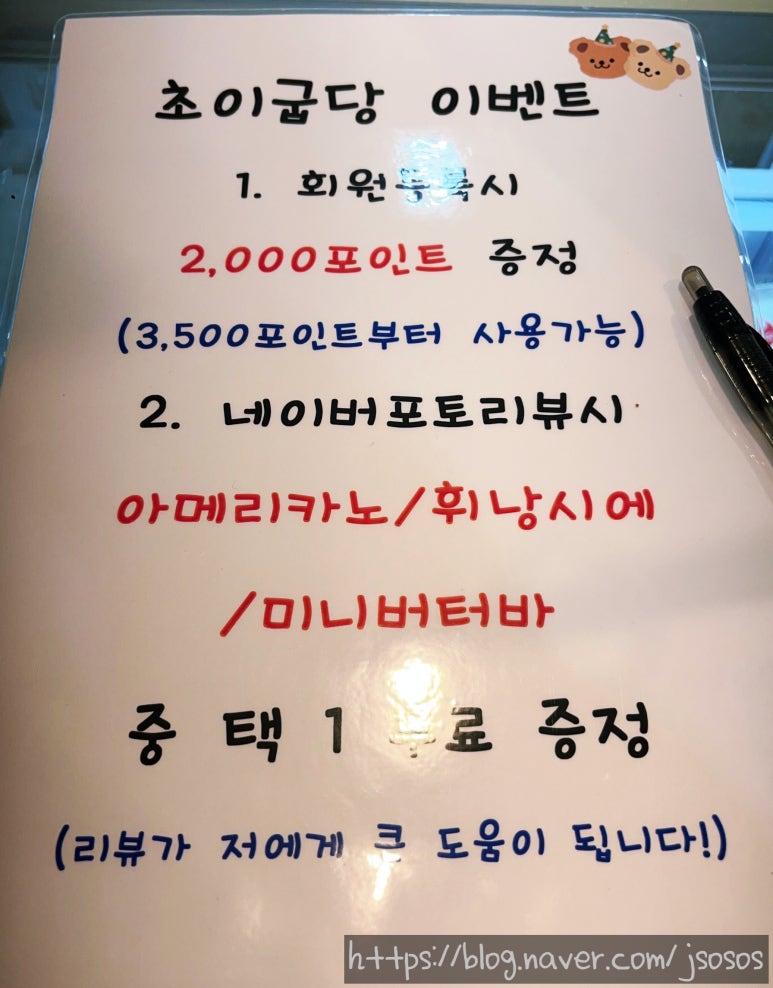 초이굽당 이벤트
1. 회원등록시
2,000포인트 증정
(3,500포인트부터 사용가능)
2. 네이버포토리뷰시
아메리카노/휘낭시에
/미니버터바
중 택 1 무료 증정
(리뷰가 저에게 큰 도움이 됩니다!)
https://blog.naver.com/jsosos